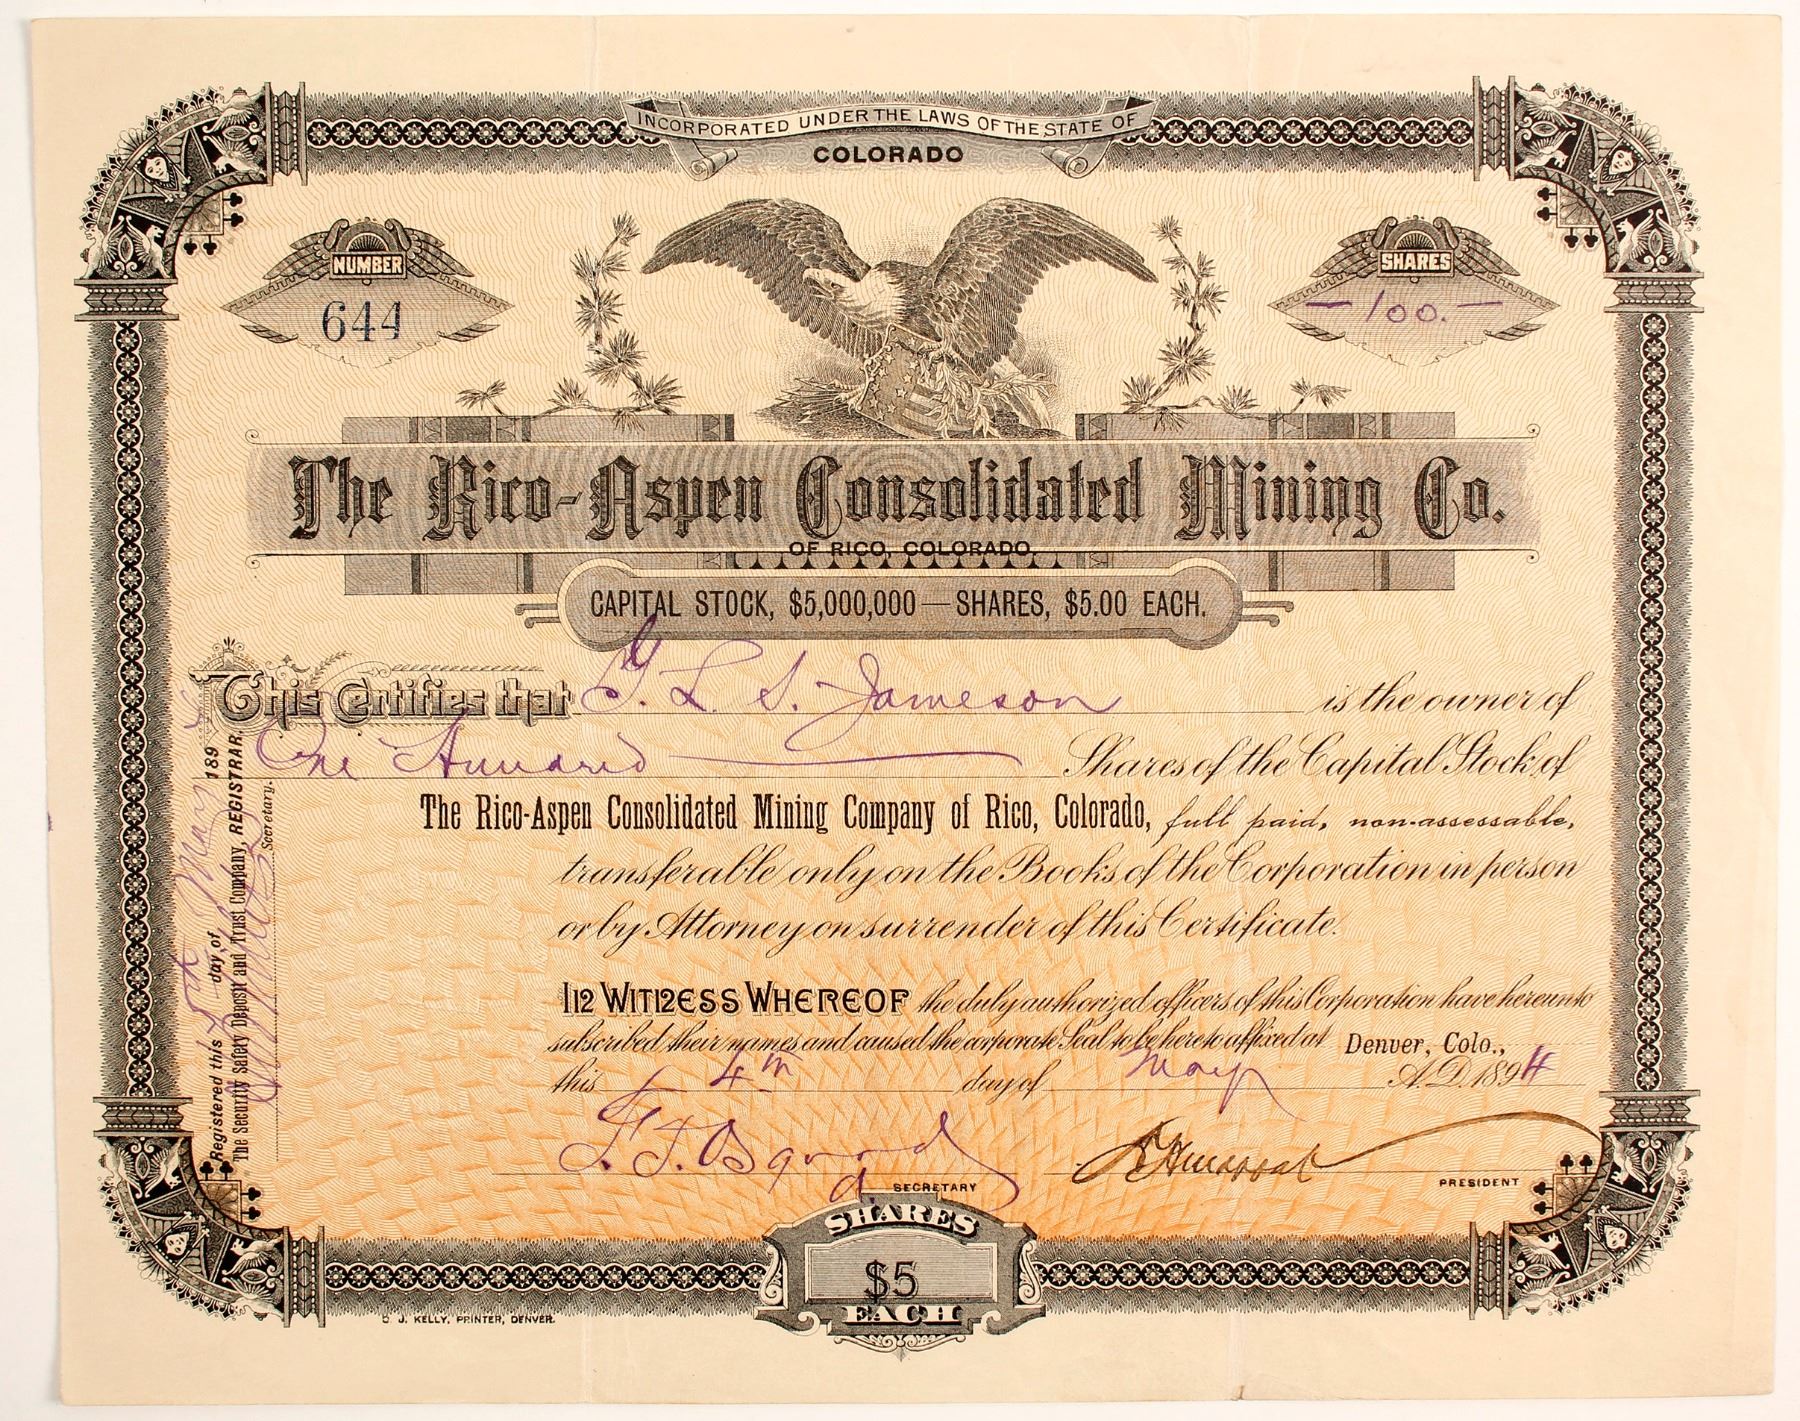 INCORPORATED UNDER THE LAWS OF THE STATE OF
COLORADO
NUMBER
644
SHARES
— 100. —
The Rico-Aspen Consolidated Mining Co.
OF RICO, COLORADO.
CAPITAL STOCK, $5,000,000 — SHARES, $5.00 EACH.
This Certifies that G. L. S. Jameson is the owner of
One Hundred Shares of the Capital Stock of
The Rico-Aspen Consolidated Mining Company of Rico, Colorado, full paid, non-assessable,
transferable only on the Books of the Corporation in person
or by Attorney on surrender of this Certificate.
In Witness Whereof the duly authorized officers of this Corporation have hereunto
subscribed their names and caused the corporate Seal to be hereto affixed at Denver, Colo.,
this 4th day of May A.D. 1894
SECRETARY
PRESIDENT
Registered this 5th day of May 189
The Security Safety Deposit and Trust Company, REGISTRAR.
Secretary.
SHARES
$5
EACH
J. KELLY, PRINTER, DENVER.